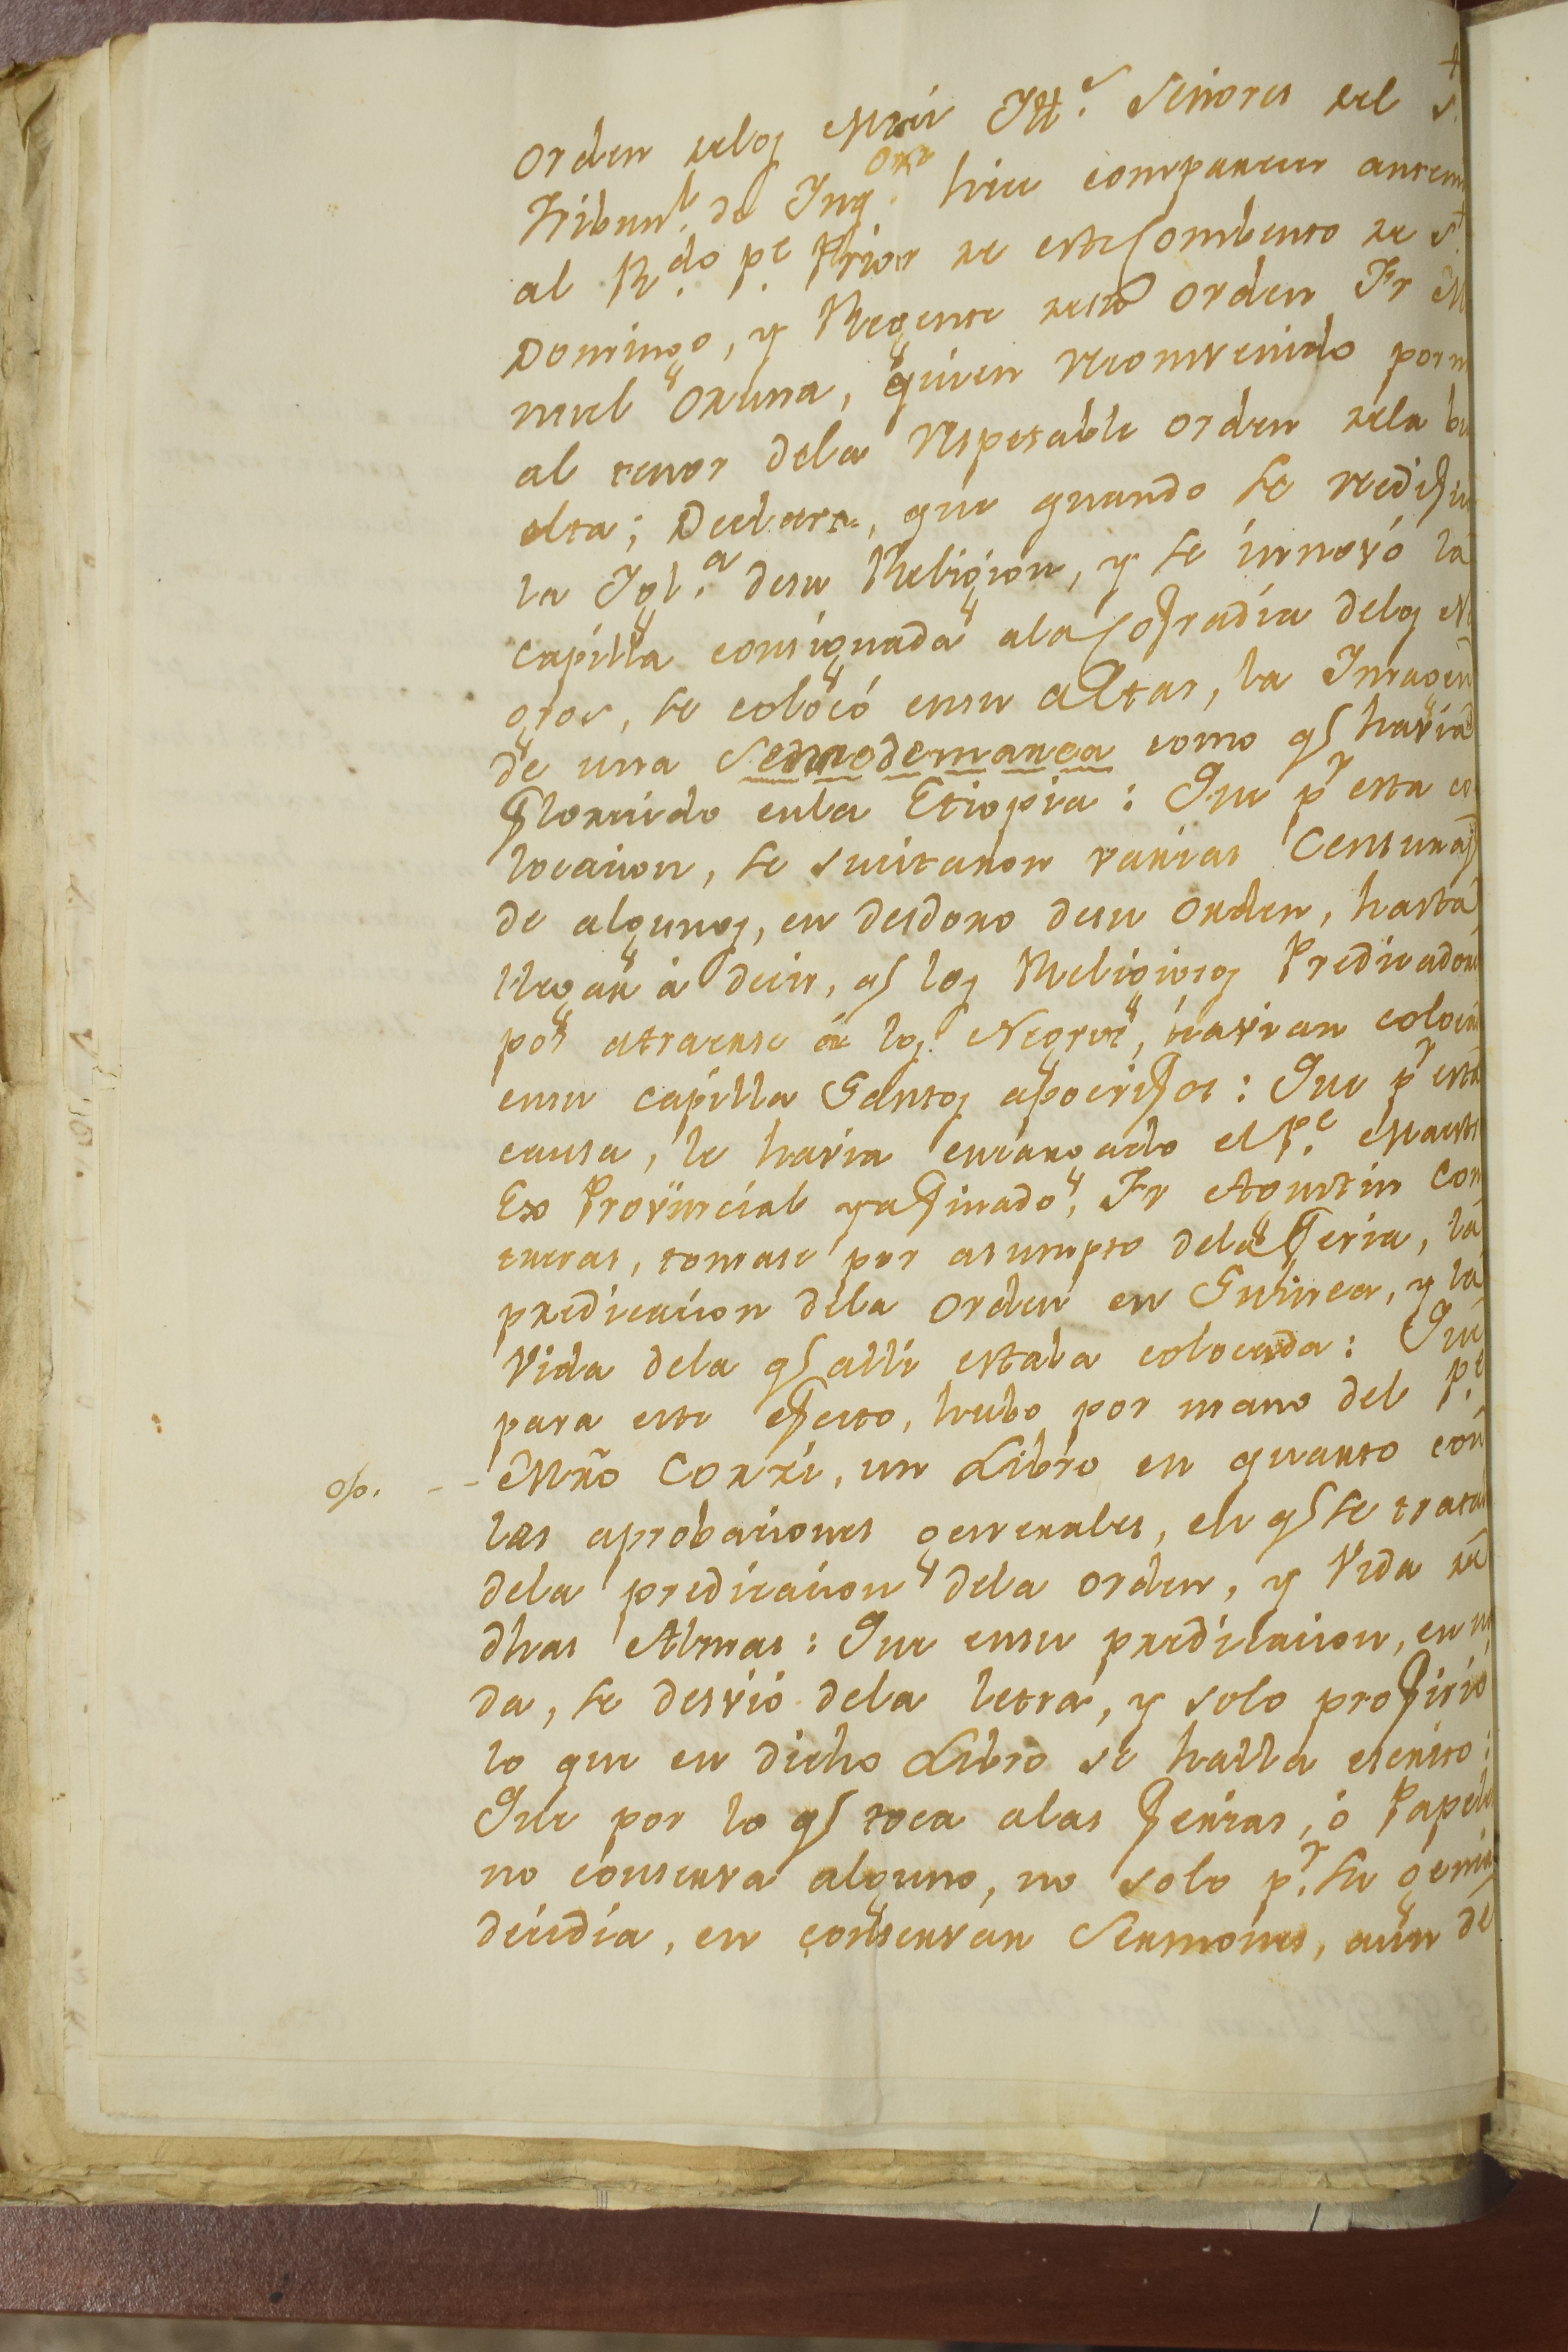 orden delos Muy Ill.e Señores del S.to
Tribun.l de Inq.on hice comparecer antemi
al R.do p.e Prior de este Combento de S.to
Domingo, y Regente desu orden Fr Ma
nuel Osuna, quien reconvenido porm
al tenor dela respetable orden dela bu
elta; Declara, que quando se redifico
la Igl.a desu Religion, y se innovó la
capilla consignada ala Cofradia delos Ne
gros, se colocó ensu altar, la Imagen
de una como q havia
florecido enla Etiopia: Que pr esta co
locacion, se sucitaron varias Censuras
de algunos, en desdoro desu orden, hasta
llegar à decir, q los Religiosos Predicadores
por atraerse à los Negros, havian colocado
ensu capilla Santos apocrifos: Que pr esta
causa, le havia encargado el P.e Maestro
Ex Provincial y afinado, Fr Agustin Con
treras, tomase por asumpto dela feria, la
predicacion dela orden en Guinea, y la
Vida dela q alli estaba colocada: Que
para este efecto, hubo por mano del P.e
o/o. -- Mro Corri, un Libro en quarto con
las aprobaciones generales, en q se trata
dela predicacion dela orden, y Vida de
dhas Almas: Que ensu predicacion, en na
da, se desvió dela letra, y solo profirió
lo que en dicho Libro se halla escrito:
Que por lo q toca alas ferias, ó Papeles
no conserva alguno, no solo p.r su genial
decidia, en conservar Sermones, aún de